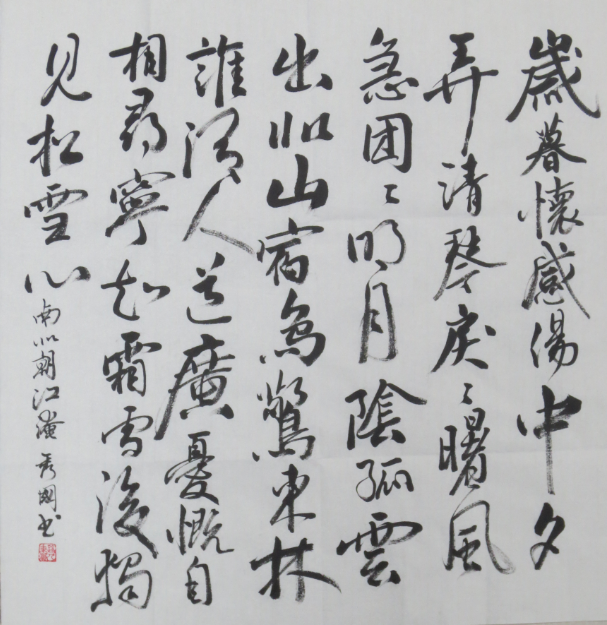 歲暮懷感傷中夕
弄清琴戾々曙風
急团々明月陰孤雲
出北山宿鳥驚東林
誰謂人道廣憂慨自
相尋寧知霜雪後獨
見松雪心
南北朝江淹 秀书